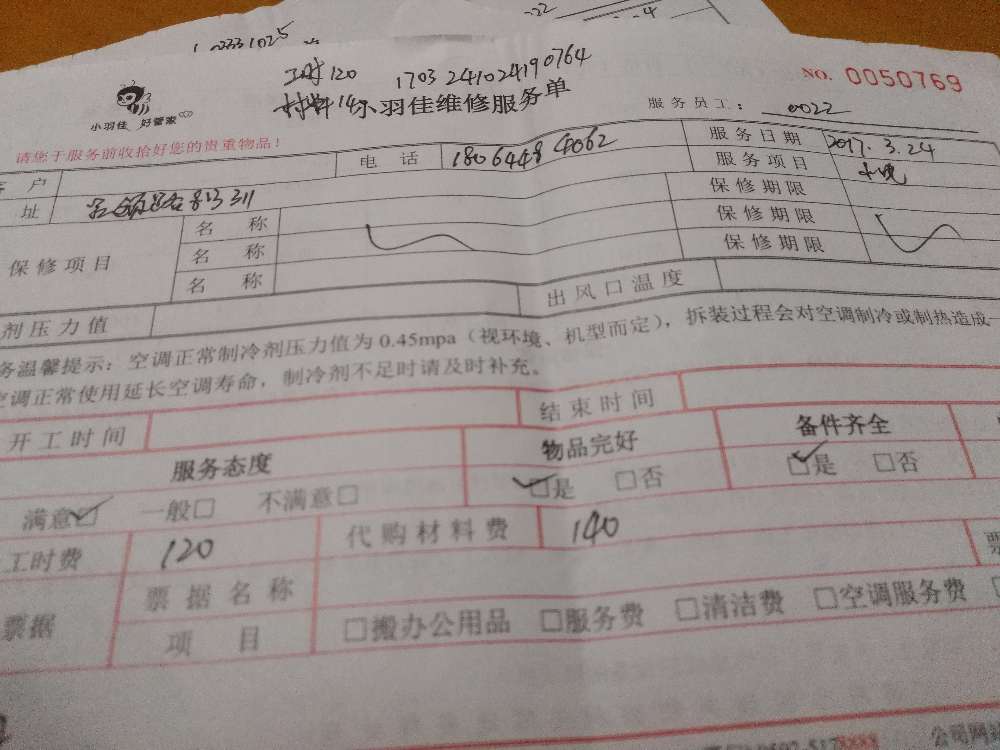 工时120 1703 241024190764
材料140
小羽佳 好管家
小羽佳维修服务单
NO. 0050769
服务员工： 0022
请您于服务前收拾好您的贵重物品！
客户 电话 18064484062 服务日期 2017.3.24
址 服务项目
保修项目 名称 保修期限
名称 保修期限
名称 保修期限
剂压力值 出风口温度
务温馨提示：空调正常制冷剂压力值为0.45mpa（视环境、机型而定），拆装过程会对空调制冷或制热造成一
空调正常使用延长空调寿命，制冷剂不足时请及时补充。
开工时间 结束时间
服务态度 物品完好 备件齐全
满意☑ 一般□ 不满意□ ☑是 □否 ☑是 □否
工时费 120 代购材料费 140
票据 票据名称 票
项目 □搬办公用品 □服务费 □清洁费 □空调服务费
公司网